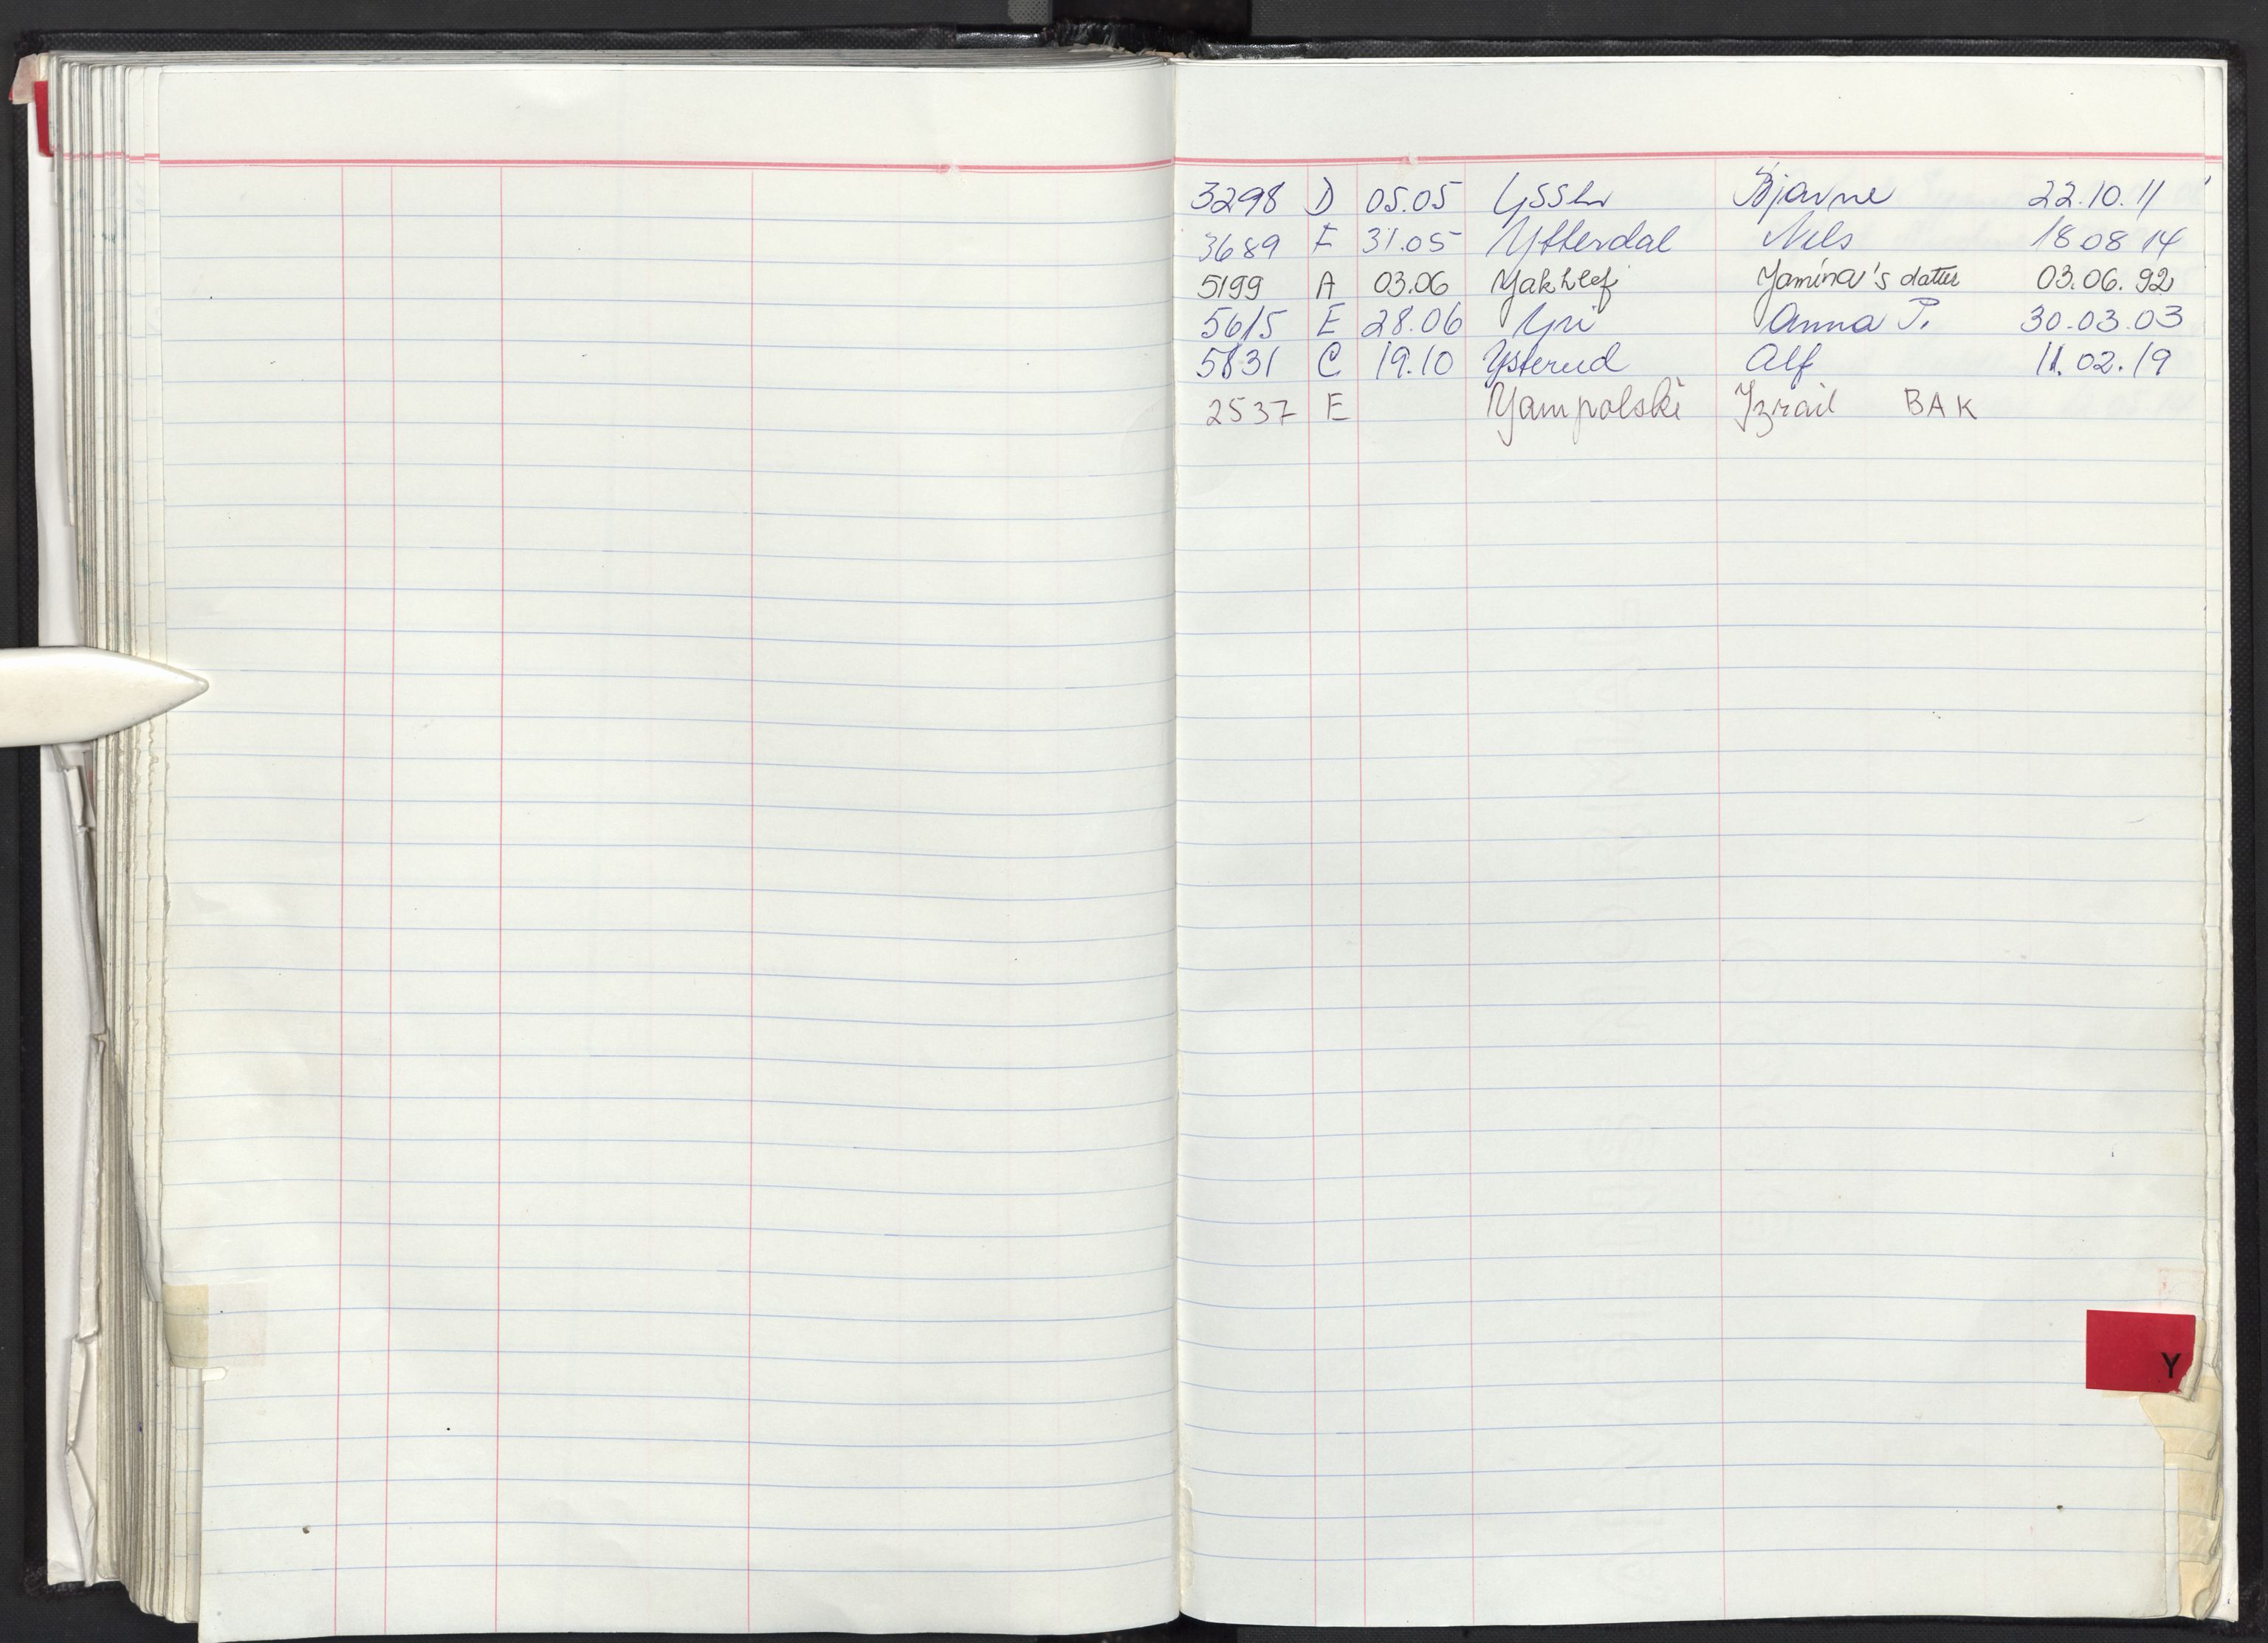 3298 D 05.05 Bjarne 22.10.11
3689 E 31.05 Ytterdal Nils 18 08 14
5199 A 03.06 Yakhlef Yamina's datter 03.06.92
5615 E 28.06 Yri Anna P. 30.03.03
5831 C 19.10 Ysterud Alf 11.02.19
2537 E Yampolski Izrail BAK
Y